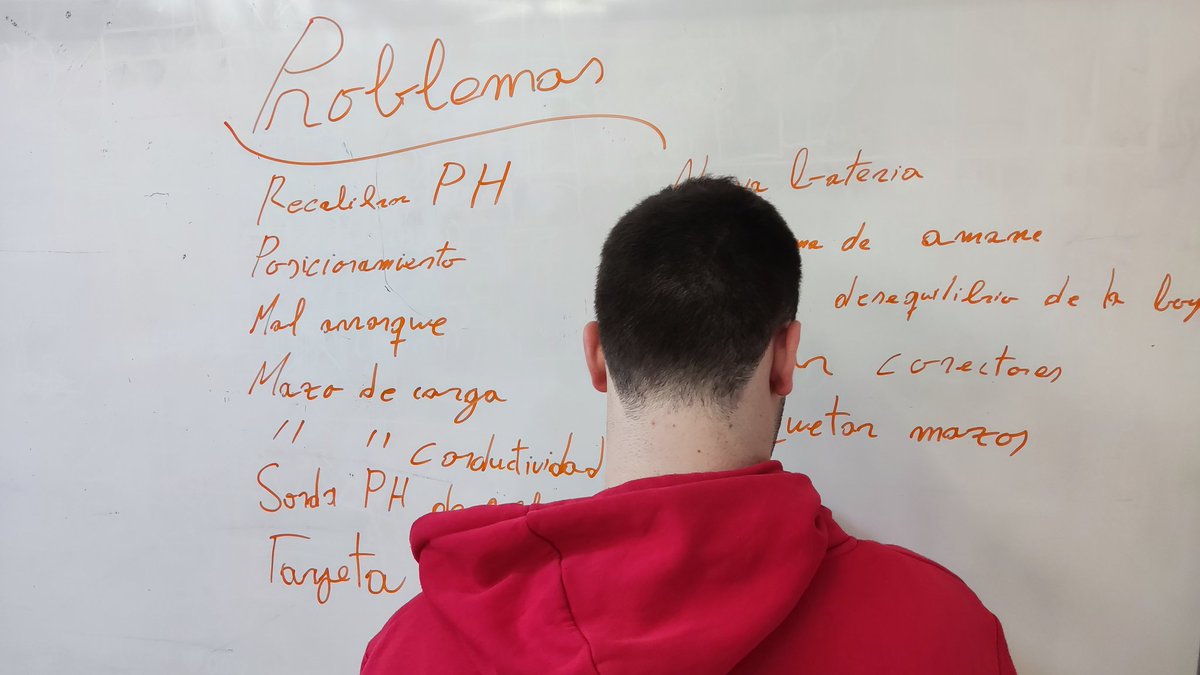 Problemas
Recalibrar PH
Posicionamiento
Mal arranque
Mazo de carga
" " conductividad
Sonda PH
Tarjeta
bateria
de amarre
desequilibrio de la boy
conectores
quetar mazos